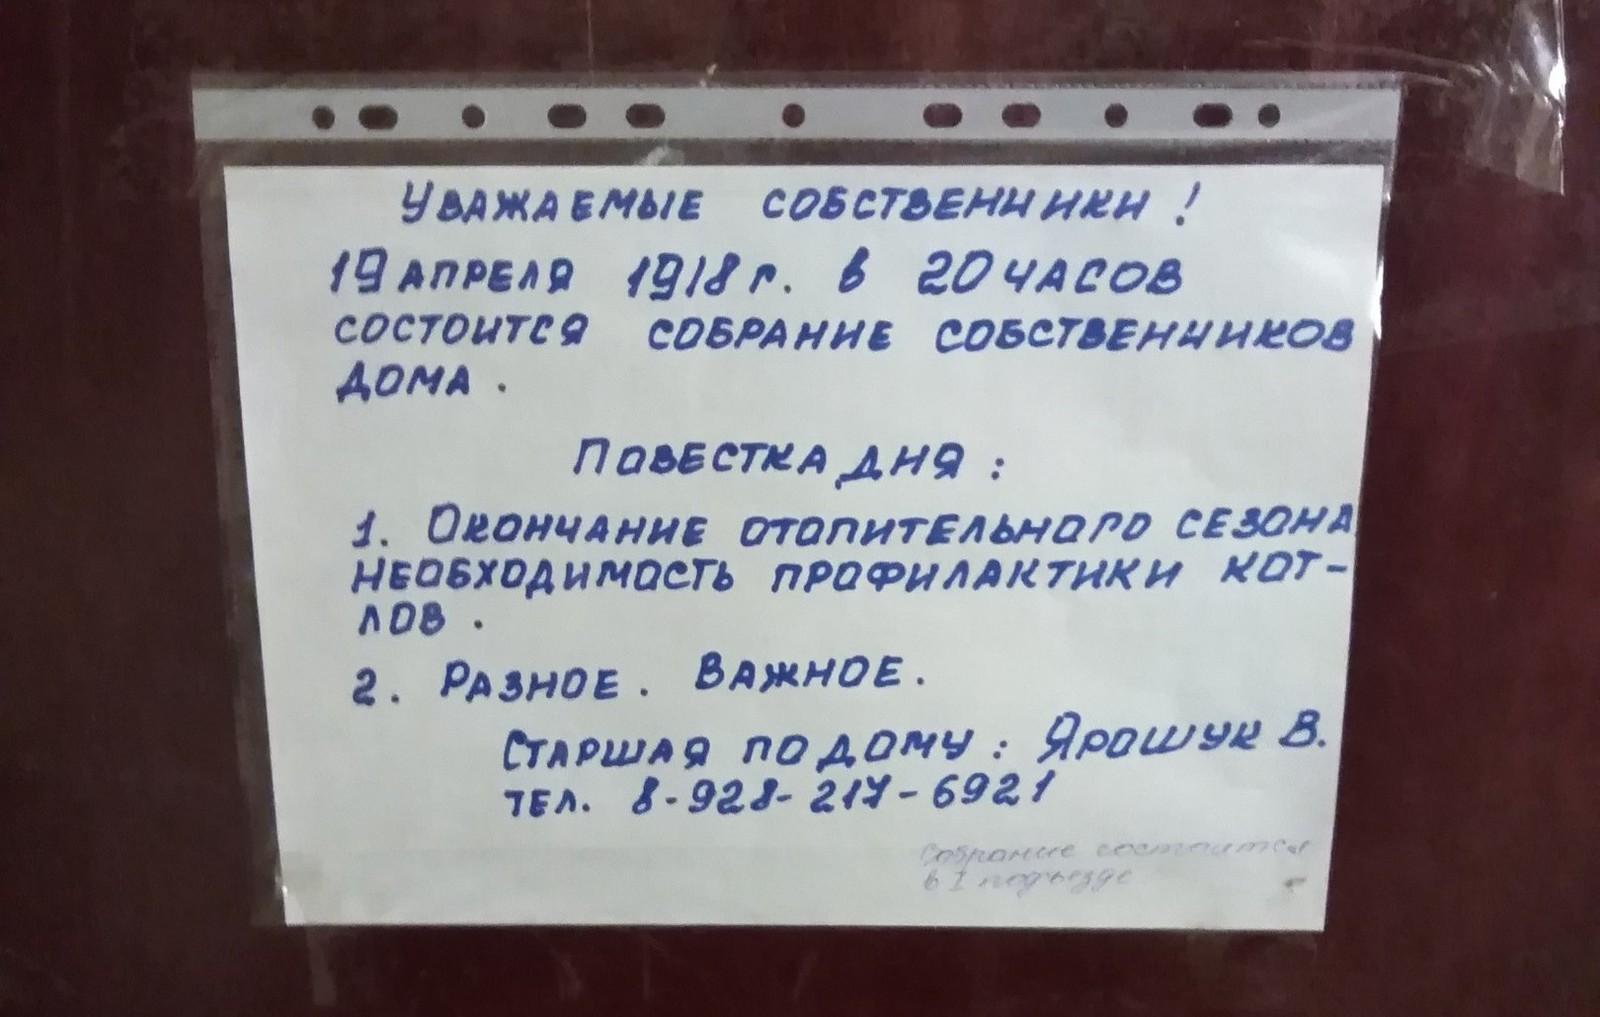 Уважаемые собственники!
19 апреля 1918 г. в 20 часов
состоится собрание собственников
дома.
Повестка дня:
1. Окончание отопительного сезона
необходимость профилактики кот-
лов.
2. Разное. Важное.
Старшая по дому: Ярошук В.
тел. 8-928-217-6921
Собрание состоится
в I подъезде